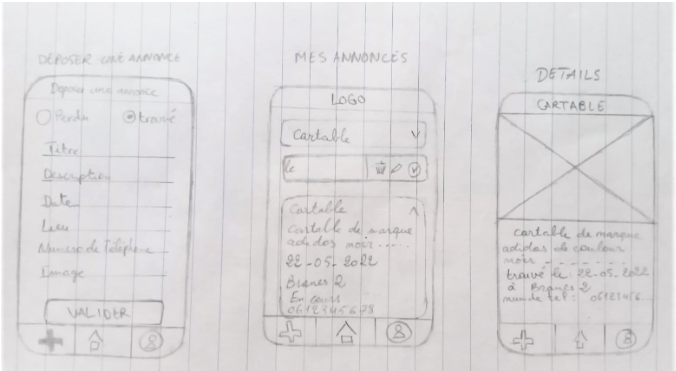 DÉPOSER UNE ANNONCE
Déposer une annonce
Perdu trouvé
Titre
Description
Date
Lieu
Numero de Téléphone
Image
VALIDER
MES ANNONCES
LOGO
Cartable
le
Cartable
Cartable de marque
adidas noir .....
22-05-2022
2
En cours
0612345678
DETAILS
CARTABLE
cartable de marque
adidas de couleur
noir - - - - - - -
trouvé le : 22-05-2022
à 2
num de tel : 0612345...